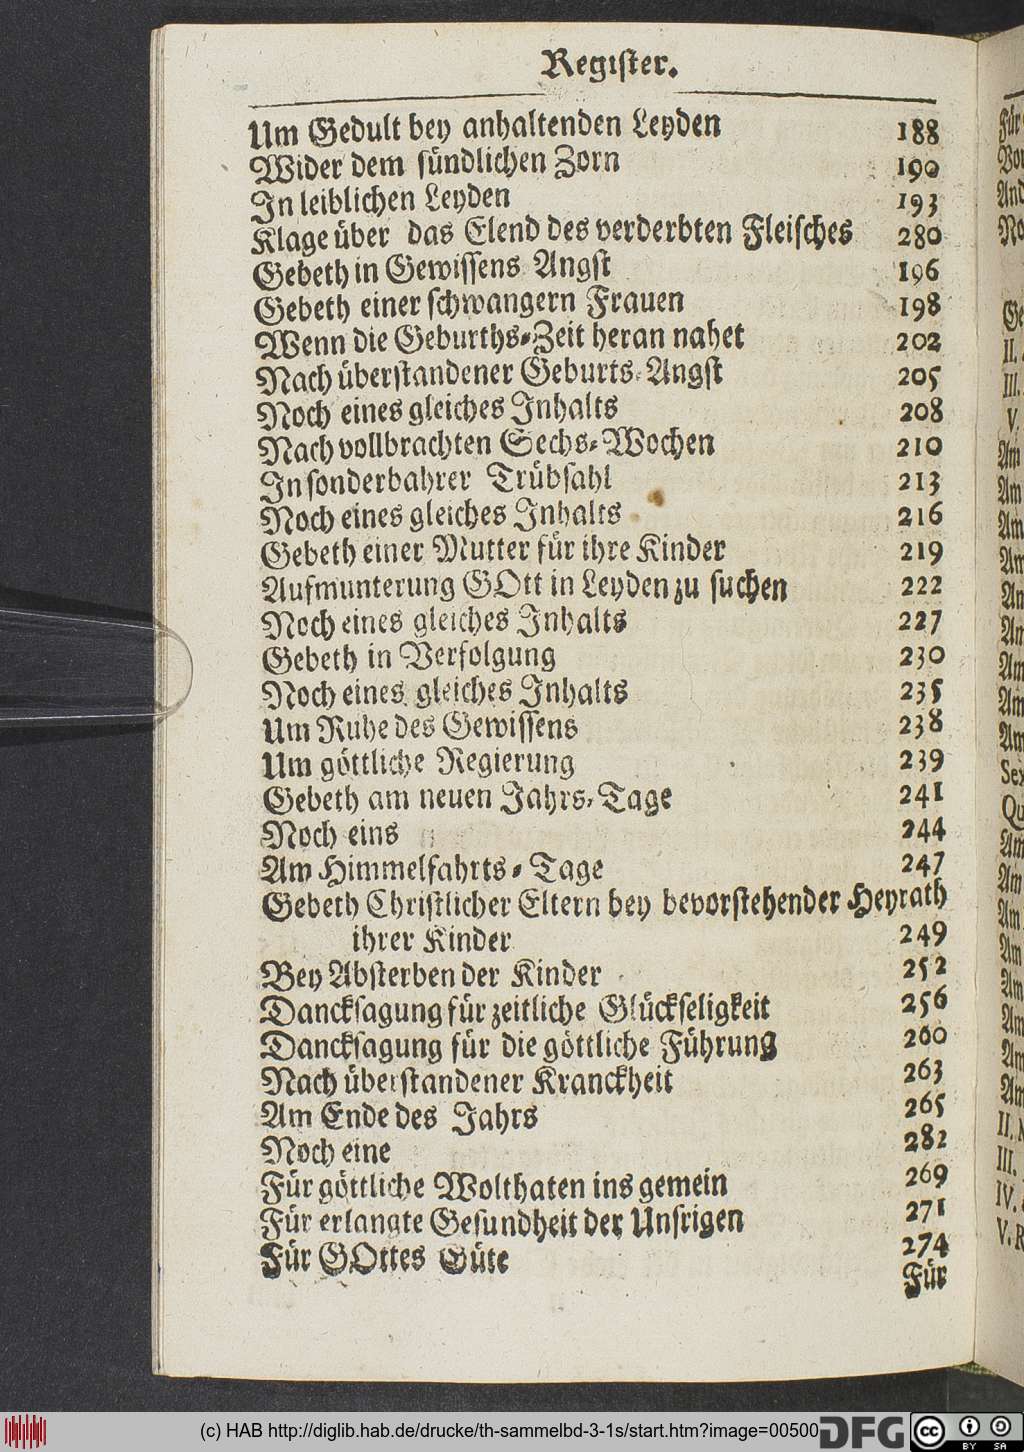 Register.
Um Gedult bey anhaltenden Leyden 188
Wider dem sündlichen Zorn 190
In leiblichen Leyden 193
Klage über das Elend des verderbten Fleisches 280
Gebeth in Gewissens Angst 196
Gebeth einer schwangern Frauen 198
Wenn die Geburths-Zeit heran nahet 202
Nach überstandener Geburts-Angst 205
Noch eines gleiches Inhalts 208
Nach vollbrachten Sechs-Wochen 210
In sonderbahrer Trübsahl 213
Noch eines gleiches Inhalts 216
Gebeth einer Mutter für ihre Kinder 219
Aufmunterung GOtt in Leyden zu suchen 222
Noch eines gleiches Inhalts 227
Gebeth in Verfolgung 230
Noch eines gleiches Inhalts 235
Um Ruhe des Gewissens 238
Um göttliche Regierung 239
Gebeth am neuen Jahrs-Tage 241
Noch eins 244
Am Himmelfahrts-Tage 247
Gebeth Christlicher Eltern bey bevorstehender Heyrath
ihrer Kinder 249
Bey Absterben der Kinder 252
Dancksagung für zeitliche Glückseligkeit 256
Dancksagung für die göttliche Führung 260
Nach überstandener Kranckheit 263
Am Ende des Jahrs 265
Noch eine 282
Für göttliche Wolthaten ins gemein 269
Für erlangte Gesundheit der Unsrigen 271
Für GOttes Güte 274
Für
Für
Am
Am
Am
Am
Am
Am
Am
Am
II.
III.
IV.
V. R
(c) HAB http://diglib.hab.de/drucke/th-sammelbd-3-1s/start.htm?image=00500
DFG
cc
BY SA